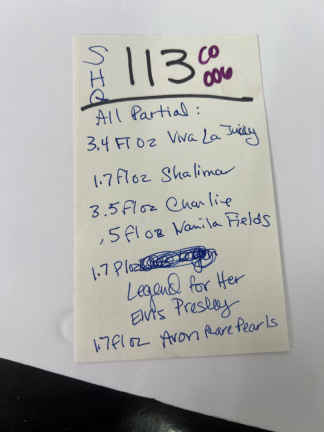 SHQ 113 CO 006
All Partial:
3.4 Fl oz Viva La Juicy
1.7 fl oz Shalimar
3.5 fl oz Charlie
.5 fl oz Vanilla Fields
1.7 fl oz
Legend for Her
Elvis Presley
1.7 fl oz Avon Rare Pearls